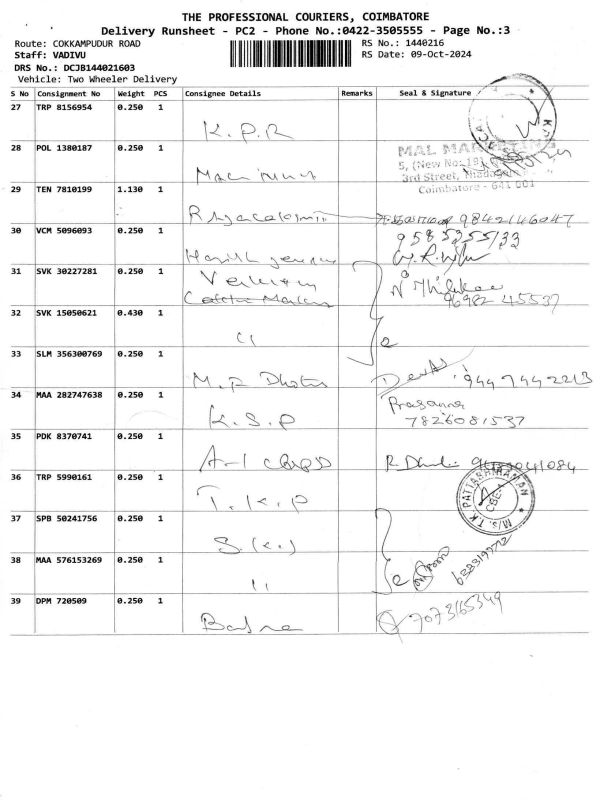 THE PROFESSIONAL COURIERS, COIMBATORE
Delivery Runsheet - PC2 - Phone No.:0422-3505555 - Page No.:3
Route: COKKAMPUDUR ROAD RS No.: 1440216
Staff: VADIVU RS Date: 09-Oct-2024
DRS No.: DCJB144021603
Vehicle: Two Wheeler Delivery
S No Consignment No Weight PCS Consignee Details Remarks Seal & Signature
27 TRP 8156954 0.250 1
K.P.R
28 POL 1380187 0.250 1
MAL MARKETING
5, (New No.18)
3rd Street,
Coimbatore - 641 001
29 TEN 7810199 1.130 1
9842146047
30 VCM 5096093 0.250 1
9585355133
31 SVK 30227281 0.250 1
96982 45537
32 SVK 15050621 0.430 1
11
33 SLM 356300769 0.250 1
M.P
9447442213
34 MAA 282747638 0.250 1
K.S.P
Prasanna
7826081537
35 PDK 8370741 0.250 1
A-1
36 TRP 5990161 0.250 1
T.K.P
M/s. T.K PATTABHIRAMAN
CBE-1
37 SPB 50241756 0.250 1
38 MAA 576153269 0.250 1
11
39 DPM 720509 0.250 1
7073165349